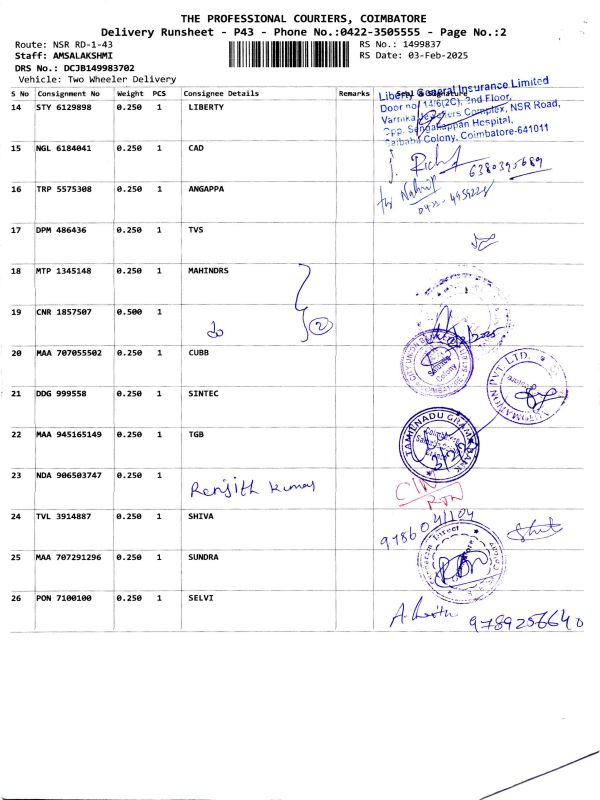 THE PROFESSIONAL COURIERS, COIMBATORE
Delivery Runsheet - P43 - Phone No.:0422-3505555 - Page No.:2
Route: NSR RD-1-43
RS No.: 1499837
Staff: AMSALAKSHMI
RS Date: 03-Feb-2025
DRS No.: DCJB149983702
Vehicle: Two Wheeler Delivery
S No Consignment No Weight PCS Consignee Details Remarks
14 STY 6129898 0.250 1 LIBERTY
Liberty General Insurance Limited
Door no 14/6(2C), 2nd Floor,
Complex, NSR Road,
Opp. Sengaliappan Hospital,
Saibaba Colony, Coimbatore-641011
15 NGL 6184041 0.250 1 CAD
6380395689
16 TRP 5575308 0.250 1 ANGAPPA
17 DPM 486436 0.250 1 TVS
18 MTP 1345148 0.250 1 MAHINDRS
19 CNR 1857507 0.500 1
do
2
20 MAA 707055502 0.250 1 CUBB
CITY UNION BANK
Saibaba
Colony
COIMBATORE
21 DDG 999558 0.250 1 SINTEC
AUTOMATION PVT LTD.
22 MAA 945165149 0.250 1 TGB
TAMILNADU GRAMA BANK
23 NDA 906503747 0.250 1
Renjith Kumar
24 TVL 3914887 0.250 1 SHIVA
9786041104
25 MAA 707291296 0.250 1 SUNDRA
26 PON 7100100 0.250 1 SELVI
9789256640